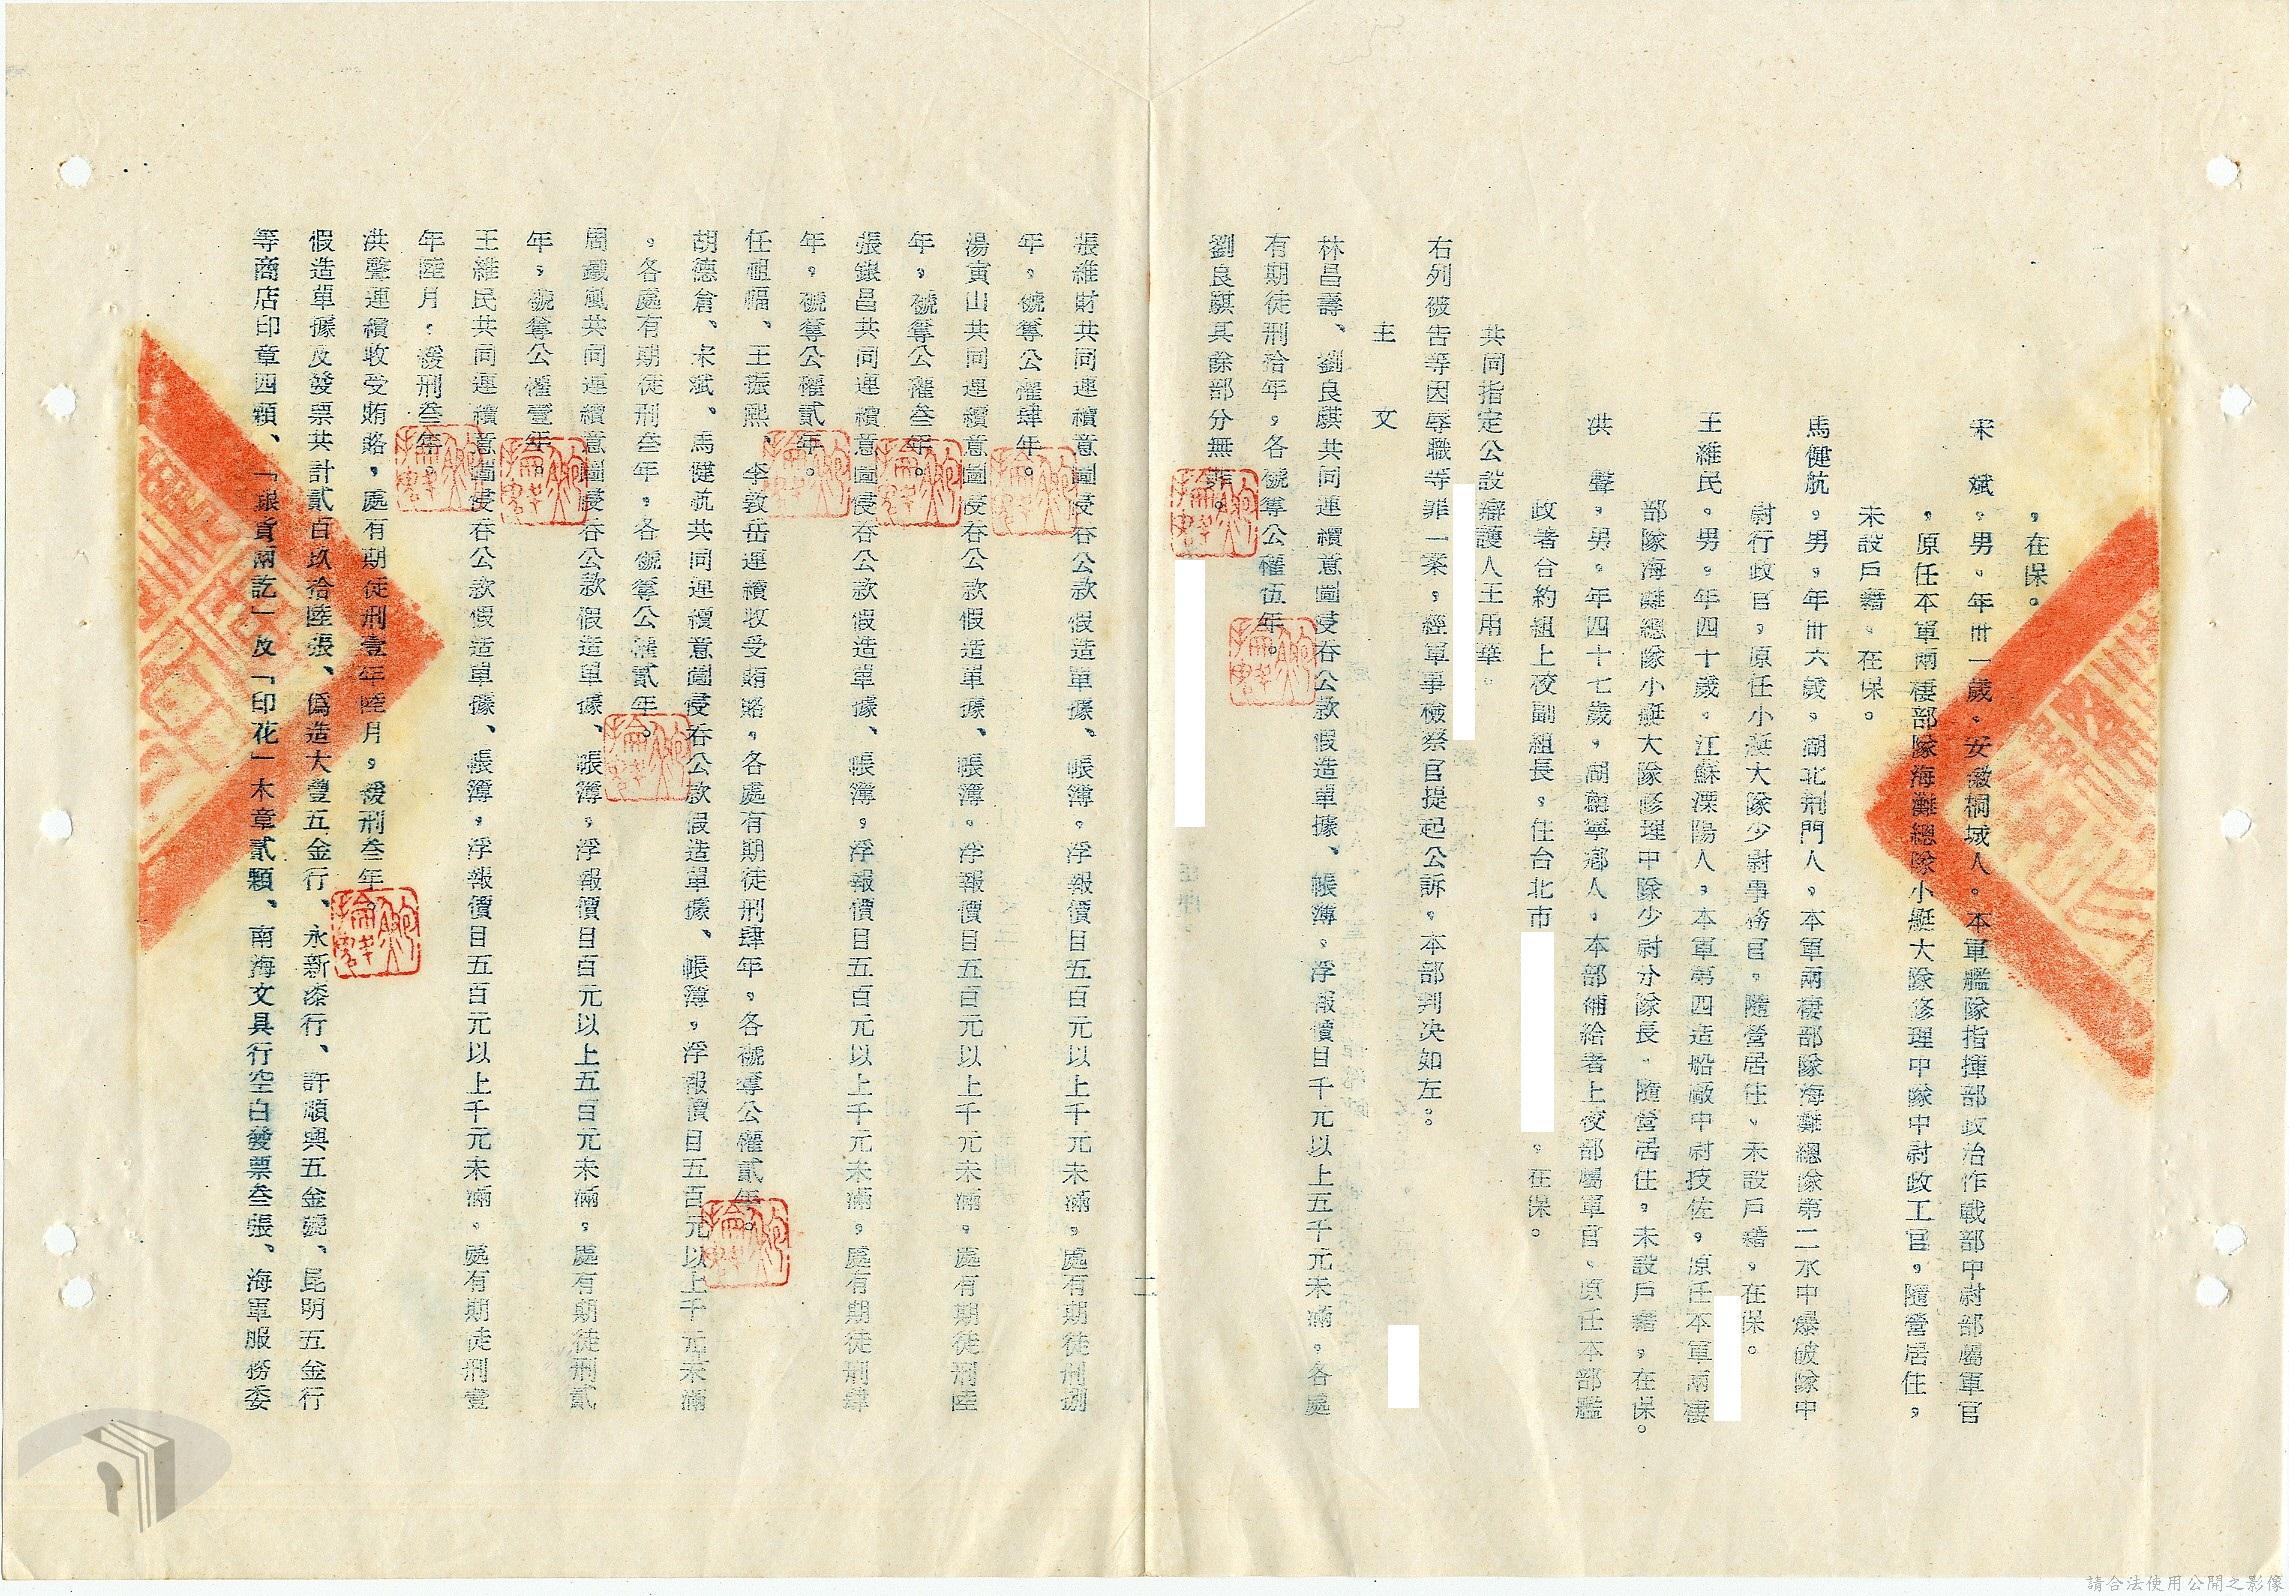 ，在保。
宋　斌，男，年卅一歲，安徽桐城人。本軍艦隊指揮部政治作戰部中尉部屬軍官
，原任本軍兩棲部隊海灘總隊小艇大隊修理中隊中尉政工官，隨營居住，
未設戶籍，在保。
馬健航，男，年卅六歲，湖北荊門人，本軍兩棲部隊海灘總隊第二水中爆破隊中
尉行政官，原任小艇大隊少尉事務官，隨營居住，未設戶籍，在保。
王維民，男，年四十歲，江蘇溧陽人，本軍第四造船廠中尉技佐，原任本軍兩棲
部隊海灘總隊小艇大隊修理中隊少尉分隊長，隨營居住，未設戶籍，在保。
洪　聲，男，年四十七歲，湖南寧鄉人，本部補給署上校部屬軍官，原任本部艦
政署合約組上校副組長，住台北市　　　，在保。
共同指定公設辯護人王用華。
右列被告等因辱職等罪一案，經軍事檢察官提起公訴，本部判決如左。
主　文
林昌壽、劉良騏共同連續意圖侵吞公款假造單據、帳簿，浮報價目千元以上五千元未滿，各處
有期徒刑拾年，各褫奪公權伍年。
劉良騏其餘部分無罪。
二
張維財共同連續意圖侵吞公款假造單據、帳簿，浮報價目五百元以上千元未滿，處有期徒刑捌
年，褫奪公權肆年。
湯寅山共同連續意圖侵吞公款假造單據、帳簿，浮報價目五百元以上千元未滿，處有期徒刑陸
年，褫奪公權叁年。
張錦昌共同連續意圖侵吞公款假造單據、帳簿，浮報價目五百元以上千元未滿，處有期徒刑肆
年，褫奪公權貳年。
任祖幅、王振熙、李敦岳連續收受賄賂，各處有期徒刑肆年，各褫奪公權貳年。
胡德倉、宋斌、馬健航共同連續意圖侵吞公款假造單據、帳簿，浮報價目五百元以上千元未滿
，各處有期徒刑叁年，各褫奪公權貳年。
周鐵風共同連續意圖侵吞公款假造單據、帳簿，浮報價目百元以上五百元未滿，處有期徒刑貳
年，褫奪公權壹年。
王維民共同連續意圖侵吞公款假造單據、帳簿，浮報價目五百元以上千元未滿，處有期徒刑壹
年陸月，緩刑叁年。
洪聲連續收受賄賂，處有期徒刑壹年陸月，緩刑叁年。
假造單據及發票共計貳百玖拾陸張、偽造大豐五金行、永新漆行、許順興五金號、昆明五金行
等商店印章四顆、「銀貨兩訖」及「印花」木章貳顆、南海文具行空白發票叁張、海軍服務委
請合法使用公開之影像